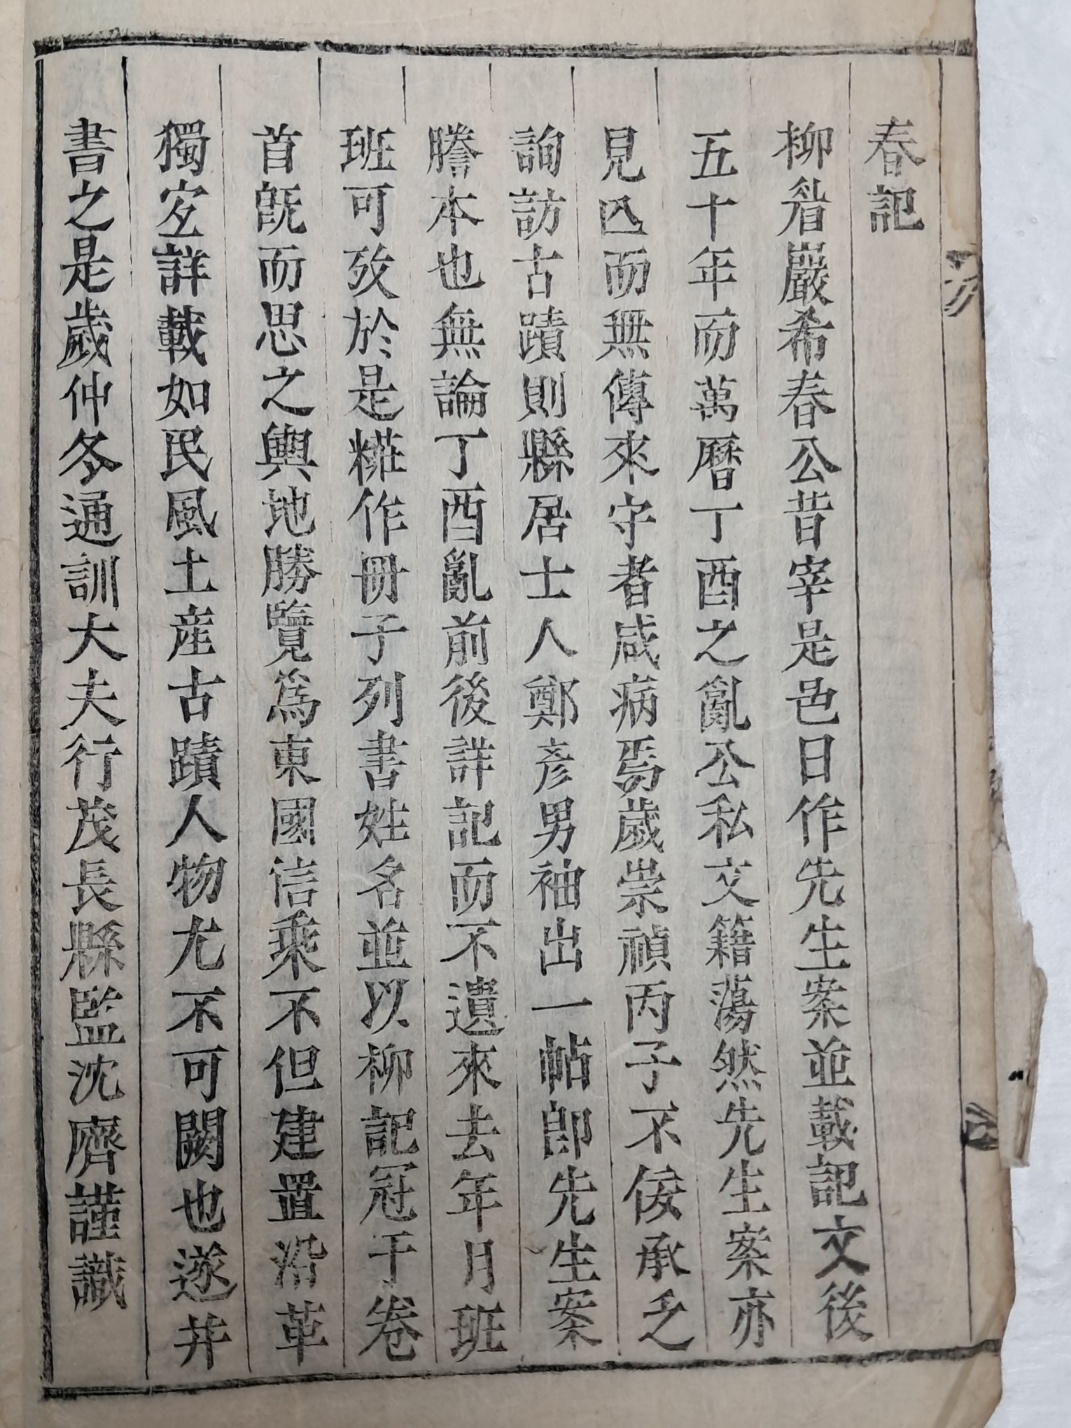 春記
柳眉巖希春公昔宰是邑日作先生案並載記文後
五十年而萬曆丁酉之亂公私文籍蕩然先生案亦
見亾而無傳來守者咸病焉歲崇禎丙子不佞承乏
詢訪古蹟則縣居士人鄭彥男袖出一帖卽先生案
謄本也無論丁酉亂前後詳記而不遺來去年月班
班可攷於是糚作冊子列書姓名並以柳記冠于卷
首旣而思之輿地勝覽爲東國信乘不但建置沿革
獨定詳載如民風土産古蹟人物尤不可闕也遂幷
書之是歲仲冬通訓大夫行茂長縣監沈㾒謹識